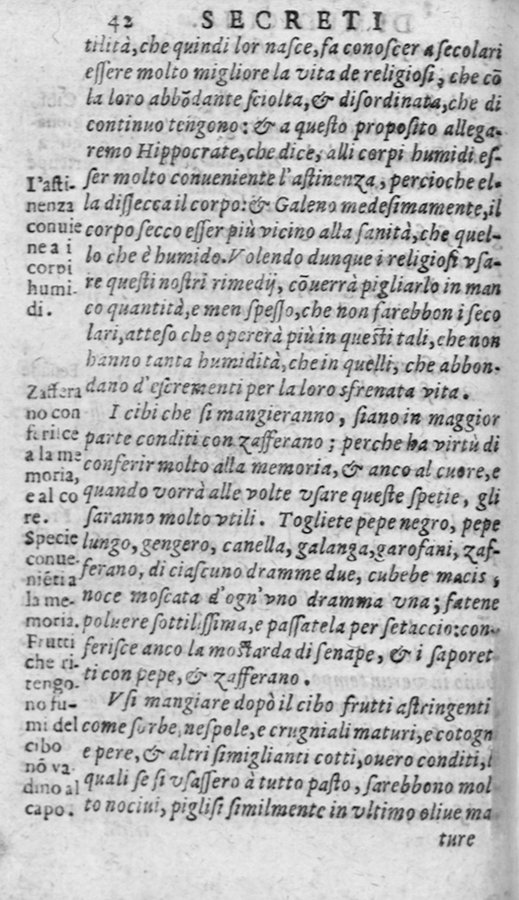 42 SECRETI
tilità, che quindi lor nasce, fa conoscer a secolari
essere molto migliore la vita de religiosi, che cō
la loro abbōdante sciolta, & disordinata, che di
continuo tengono: & a questo proposito allega-
remo Hippocrate, che dice, alli corpi humidi es-
ser molto conueniente l'astinenza, percioche el-
la dissecca il corpo: & Galeno medesimamente, il
corpo secco esser più vicino alla sanità, che quel-
lo che è humido. Volendo dunque i religiosi vsa-
re questi nostri rimedij, cōuerrà pigliarlo in man
co quantità, e men spesso, che non farebbon i seco
lari, atteso che opererà più in questi tali, che non
hanno tanta humidità, che in quelli, che abbon-
dano d'escrementi per la loro sfrenata vita.
I cibi che si mangieranno, siano in maggior
parte conditi con zafferano; perche ha virtù di
conferir molto alla memoria, & anco al cuore, e
quando vorrà alle volte vsare queste spetie, gli
saranno molto vtili. Togliete pepe negro, pepe
lungo, gengero, canella, galanga, garofani, zaf-
ferano, di ciascuno dramme due, cubebe macis,
noce moscata d'ogn'vno dramma vna; fatene
poluere sottilissima, e passatela per setaccio: con-
ferisce anco la mostarda di senape, & i saporet
ti con pepe, & zafferano.
Vsi mangiare dopò il cibo frutti astringenti
come sorbe, nespole, e crugniali maturi, e cotogn
e pere, & altri simiglianti cotti, ouero conditi, l
quali se si vsassero à tutto pasto, sarebbono mol
to nociui, piglisi similmente in vltimo oliue ma
ture
L'asti-
nenza
conuie
ne a i
corpi
humi-
di.
Zaffera
no con
ferisce
a la me
moria,
e al co
re.
Specie
conue-
niēti a
la me-
moria.
Frutti
che ri-
tengo-
no fu-
mi del
cibo
nō va-
dino al
capo.